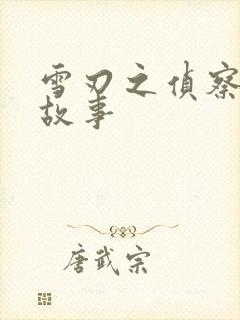 雪刃之偵察
故事
唐武宗